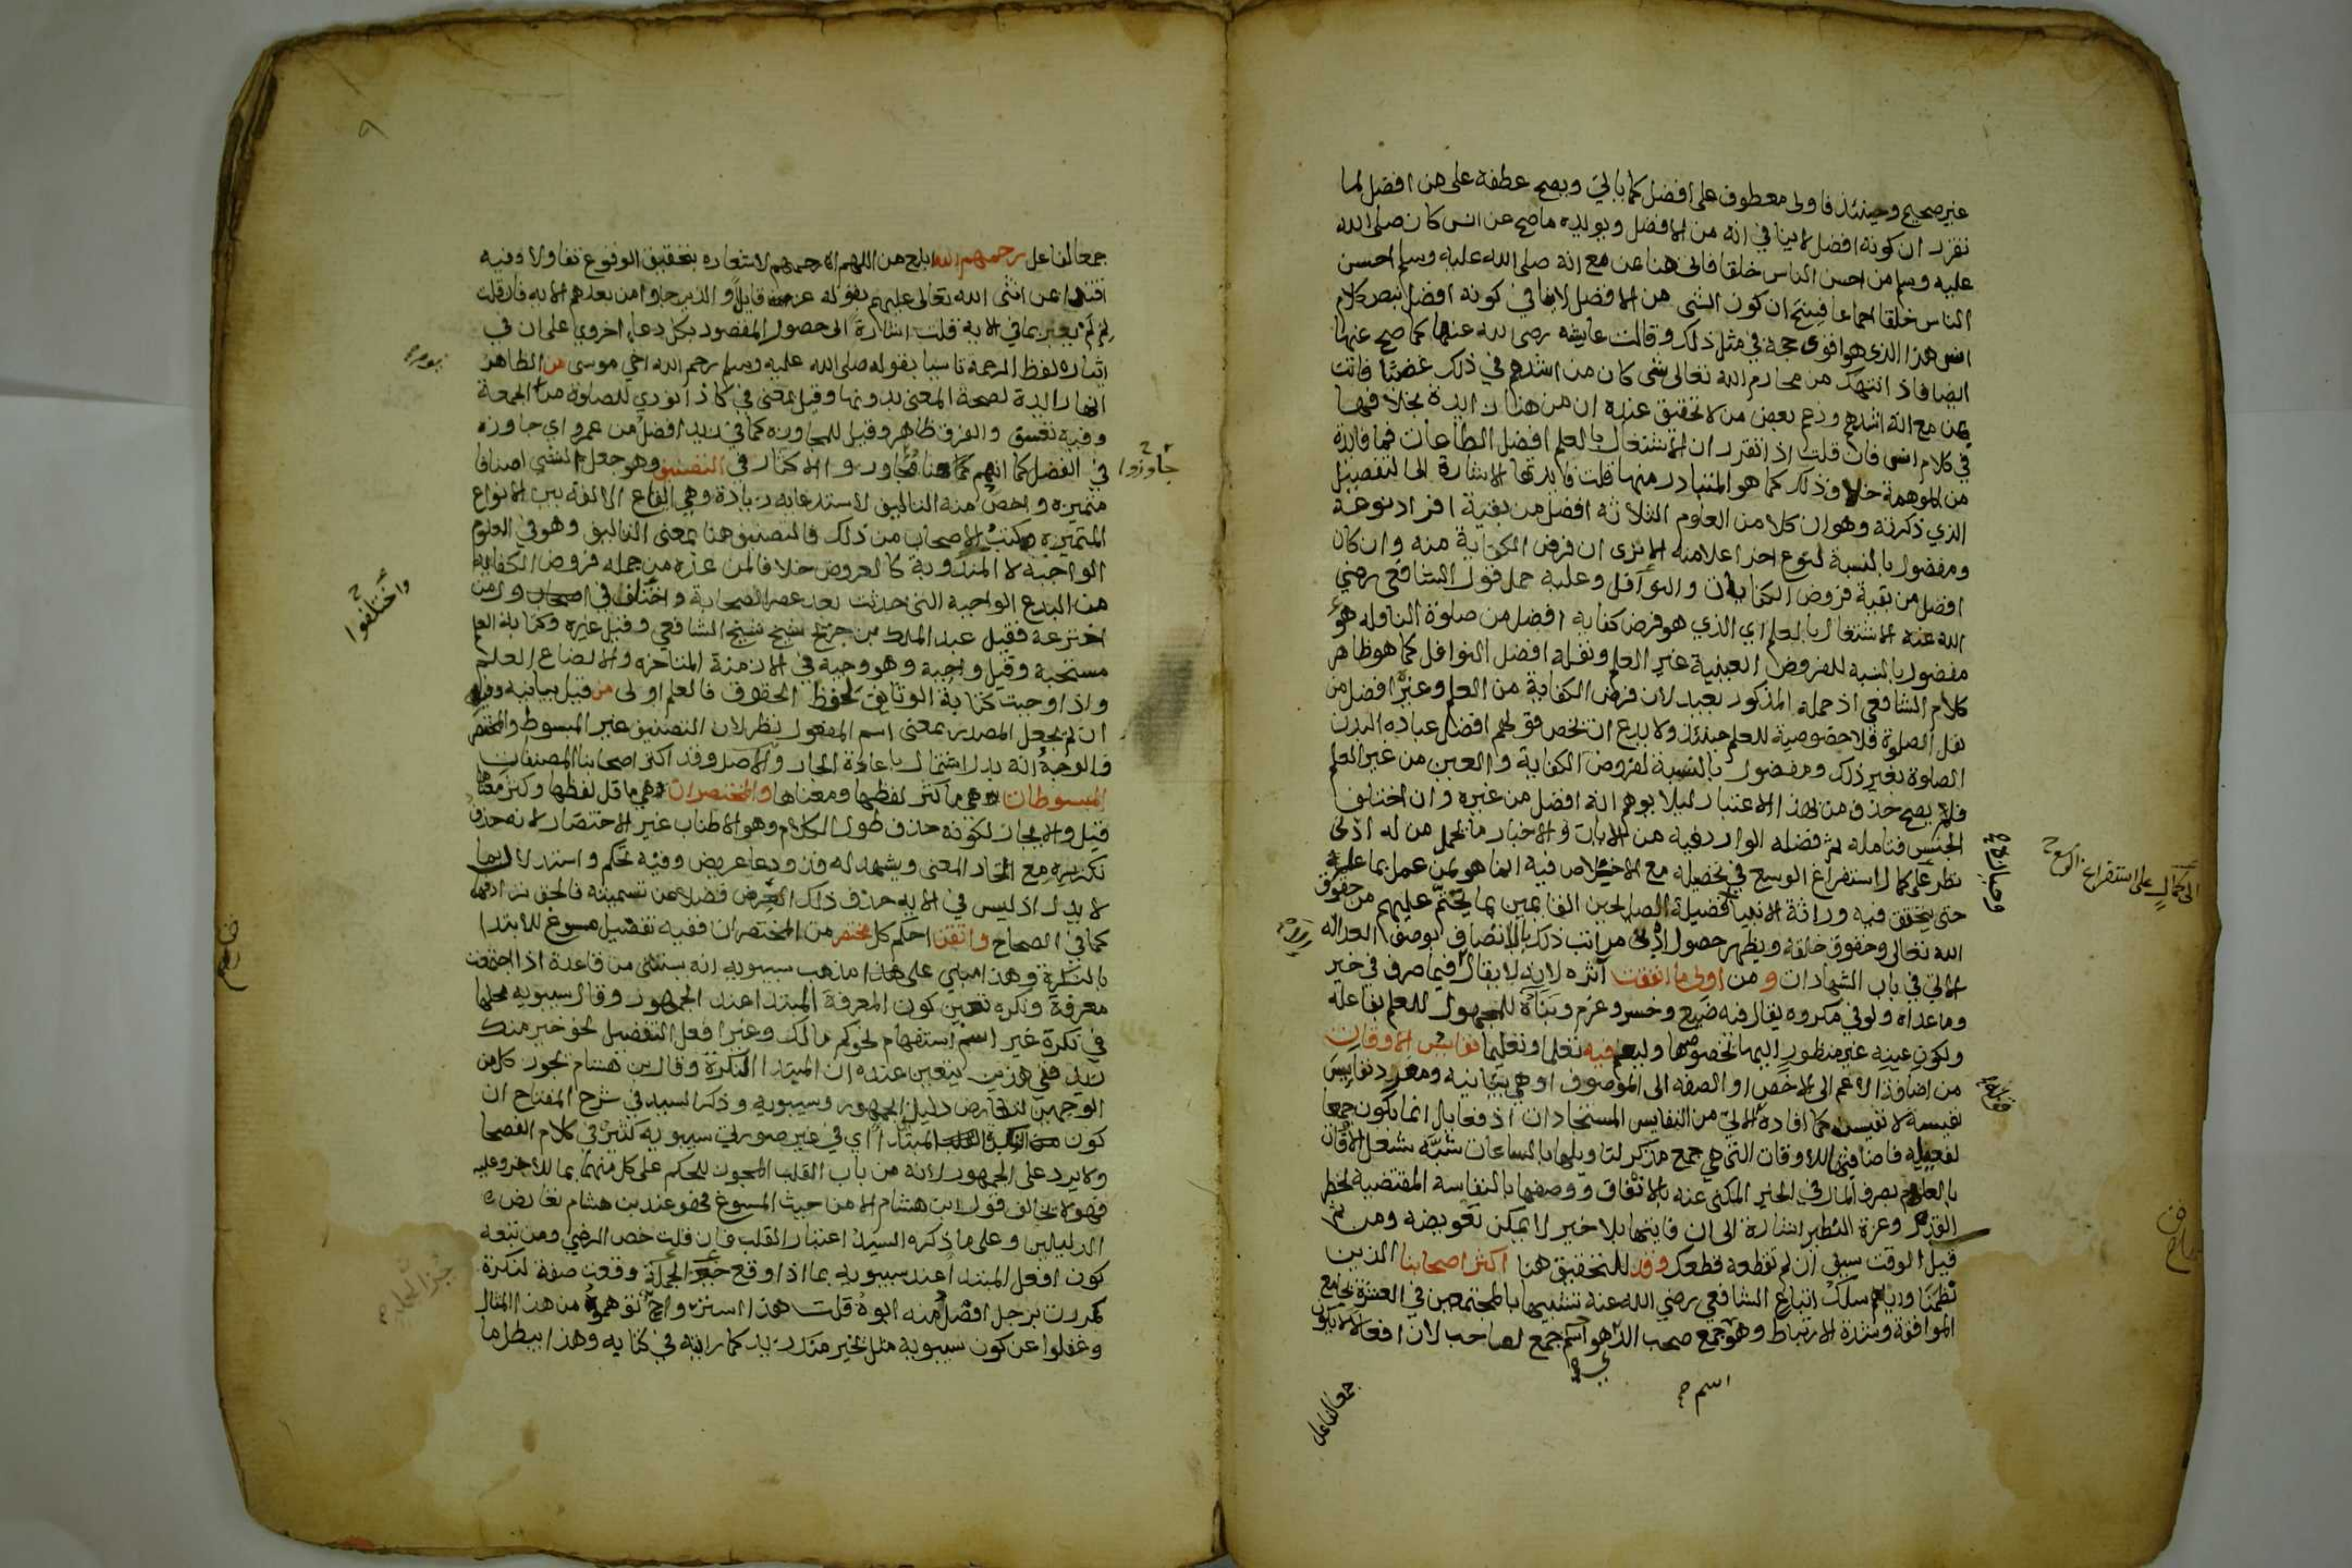 غير صحيح وحينئذ فاولى معطوف على افضل كما ياتي ويصح عطفه على من افضل لما
تقرر ان كونه افضل لا ينافي انه من الافضل ويويده ما صح عن انس كان صلى الله
عليه وسلم من احسن الناس خلقا فاتى هنا بمن مع انه صلى الله عليه وسلم احسن
الناس خلقا اجماعا فينتج ان كون الشي من الافضل لا ينافي كونه افضل بنص كلام
انس هذا الذي هو اقوى حجة في مثل ذلك وقالت عايشه رضي الله عنها كما صح عنها
ايضا فاذا انتهك من محارم الله تعالى شي كان من اشدهم في ذلك غضبا فاتت
بمن مع انه اشدهم وزعم بعض من لا تحقيق عنده ان من هنا زايدة بخلافها
في كلام انس فان قلت اذا تقرر ان الاشتغال بالعلم افضل الطاعات فما فايدة
من الموهمة خلاف ذلك كما هو المتبادر منها قلت فايدتها الاشارة الى التفصيل
الذي ذكرته وهو ان كلا من العلوم الثلاثة افضل من بقية افراد نوعه
ومفضول بالنسبة لنوع اخر اعلا منه الا ترى ان فرض الكفاية منه وان كان
افضل من بقية فروض الكفايات والنوافل وعليه حمل قول الشافعي رضي
الله عنه الاشتغال بالعلم اي الذي هو فرض كفايه افضل من صلوة النافله هو
مفضول بالنسبه للفروض العينية غير العلم ونفله افضل النوافل كما هو ظاهر
كلام الشافعي اذ حمله المذكور بعيد لان فرض الكفاية من العلم وغيره افضل من
نفل الصلوة فلا خصوصية للعلم حينئذ ولا بدع ان تخص قولهم افضل عباده البدن
الصلوة بغير ذلك ومفضول بالنسبة لفروض الكفاية والعين من غير العلم
فلم يصح حذف من بهذا الاعتبار ليلا يوهم انه افضل من غيره وان اختلف
الجنس فتامله ثم فضله الوارد فيه من الايات والاخبار ما يحمل من له ادنى
نظر على كمال استفراغ الوسع في تحصيله مع الاخلاص فيه انما هو لمن عمل بما علمه
حتى يتحقق فيه وراثة الانبيا وفضيلة الصالحين القايمين بما يتحتم عليهم من حقوق
الله تعالى وحقوق خلقه ويظهر حصول ادنى مراتب ذلك بالاتصاف بوصف العداله
الاتي في باب الشهادات ومن اولى ما انفقت اثره لانه لا يقال الا فيما صرف في خير
وما عداه ولو في مكروه يقال فيه ضيع وخسر وغرم وبناه للمجهول للعلم بفاعله
ولكون عينه غير منظور اليها بخصوصها وليعم فيه تعلما وتعليما نفايس الاوقات
من اضافة الاعم الى الاخص او الصفه الى الموصوف او هي بيانيه ومفرد نفايس
نفيسه لا نفيس كما افاده الاتي من النفايس المستجادات اذ فعايل انما يكون جمعا
لفعيله فاضافتها للاوقات التي هي جمع مذكر لتاويلها بالساعات شبه شغل الاوقات
بالعلوم بصرف المال في الخير المكنى عنه بالانفاق ووصفها بالنفاسه المقتضيه لخطر
القدر وعزة النظير اشارة الى ان فايتها بلا خير لا يمكن تعويضه ومن ثم
قيل الوقت سيف ان لم تقطعه قطعك وقد للتحقيق هنا اكثر اصحابنا الذين
نظمنا واياهم سلك اتباع الشافعي رضي الله عنه تشبيها بالمجتمعين في العشرة بجامع
الموافقة وشدة الارتباط وهو جمع صحب الذي هو اسم جمع لصاحب لان افعالا لا يكون
اسم ح
جمعا لفاعل
جمعا لفاعل رحمهم الله ابلغ من اللهم ارحمهم لاشعاره بتحقيق الوقوع تفاولا وفيه
اقتدا بمن اثنى الله تعالى عليهم بقوله عز قايلا والذين جاوا من بعدهم الايه فان قلت
لم لم يعبر بما في الايه قلت اشارة الى حصول المقصود بكل دعاء اخروي على ان في
ايثاره لفظ الرحمة تاسيا بقوله صلى الله عليه وسلم رحم الله اخي موسى من الظاهر
انها زايدة لصحة المعنى بدونها وقيل بمعنى في كاذا نودي للصلوة من يوم الجمعة
وفيه تعسف والفرق ظاهر وقيل للمجاوزه كما في زيد افضل من عمرو اي جاوزه
في الفضل كما انهم هنا جاوزوا الاكثار في التصنيف وهو جعل الشي اصنافا
متميزه واخص منه التاليف لاستدعايه زيادة وهي ايقاع الالفة بين الانواع
المتميزه وكتب الاصحاب من ذلك فالتصنيف هنا بمعنى التاليف وهو في العلوم
الواجبة لا المندوبة كالعروض خلافا لمن عده من جمله فروض الكفايه
من البدع الواجبه التي حدثت بعد عصر الصحابة واختلف في اول من
اخترعه فقيل عبد الملك بن جريج شيخ شيخ الشافعي وقيل غيره وكتابة العلم
مستحبة وقيل واجبة وهو وجيه في الازمنة المتاخره والا لضاع العلم
واذا وجبت كتابة الوثايق لحفظ الحقوق فالعلم اولى من قيل بيانيه وفيه
ان لم يجعل المصدر بمعنى اسم المفعول نظر لان التصنيف غير المبسوط والمختصر
فالوجه انه بدل اشتمال باعادة الجار والاصل وقد اكثر اصحابنا المصنفات
المبسوطات وهي ما كثر لفظها ومعناها والمختصرات وهي ما قل لفظها وكثر معناها
قيل والايجاز لكونه حذف طول الكلام وهو الاطناب غير الاختصار لانه حذف
تكريره مع اتحاد المعنى ويشهد له فذو دعاء عريض وفيه تحكم واستدلال بما
لا يدل اذ ليس في الايه حذف ذلك العرض فضلا عن تسميته فالحق ترادفهما
كما في الصحاح واتقن احكم كل مختصر من المختصرات ففيه تفضيل مسوغ للابتدا
بالنكرة وهذا مبني على هذا مذهب سيبويه انه يستثنى من قاعدة اذا اجتمعت
معرفة ونكره تعين كون المعرفة المبتدا عند الجمهور وقال سيبويه محلها
في نكرة غير اسم استفهام نحو كم مالك وغير افعل التفضيل نحو خير منك
زيد ففي هذين يتعين عنده ان المبتدا النكرة وقال بن هشام تجوز كل من
الوجهين لتعارض دليل الجمهور وسيبويه وذكر السيد في شرح المفتاح ان
كون النكرة المبتدا اي في غير صورتي سيبويه كثير في كلام الفصحا
ولا يرد على الجمهور لانه من باب القلب المجوز للحكم على كل منهما بما للاخر وعليه
فهو لا يخالف قول ابن هشام الا من حيث المسوغ فهو عند بن هشام تعارض
الدليلين وعلى ما ذكره السيد اعتبار القلب فان قلت خص الرضي ومن تبعه
كون افعل المبتدا عند سيبويه بما اذا وقع جزء الجملة وقعت صفة لنكرة
كمررت برجل افضل منه ابوه قلت هذا استرواح توهموه من هذا المثال
وغفلوا عن كون سيبويه مثل بخير منك زيد كما رايته في كتابه وهذا يبطل ما
جاوزوا
واختلفوا